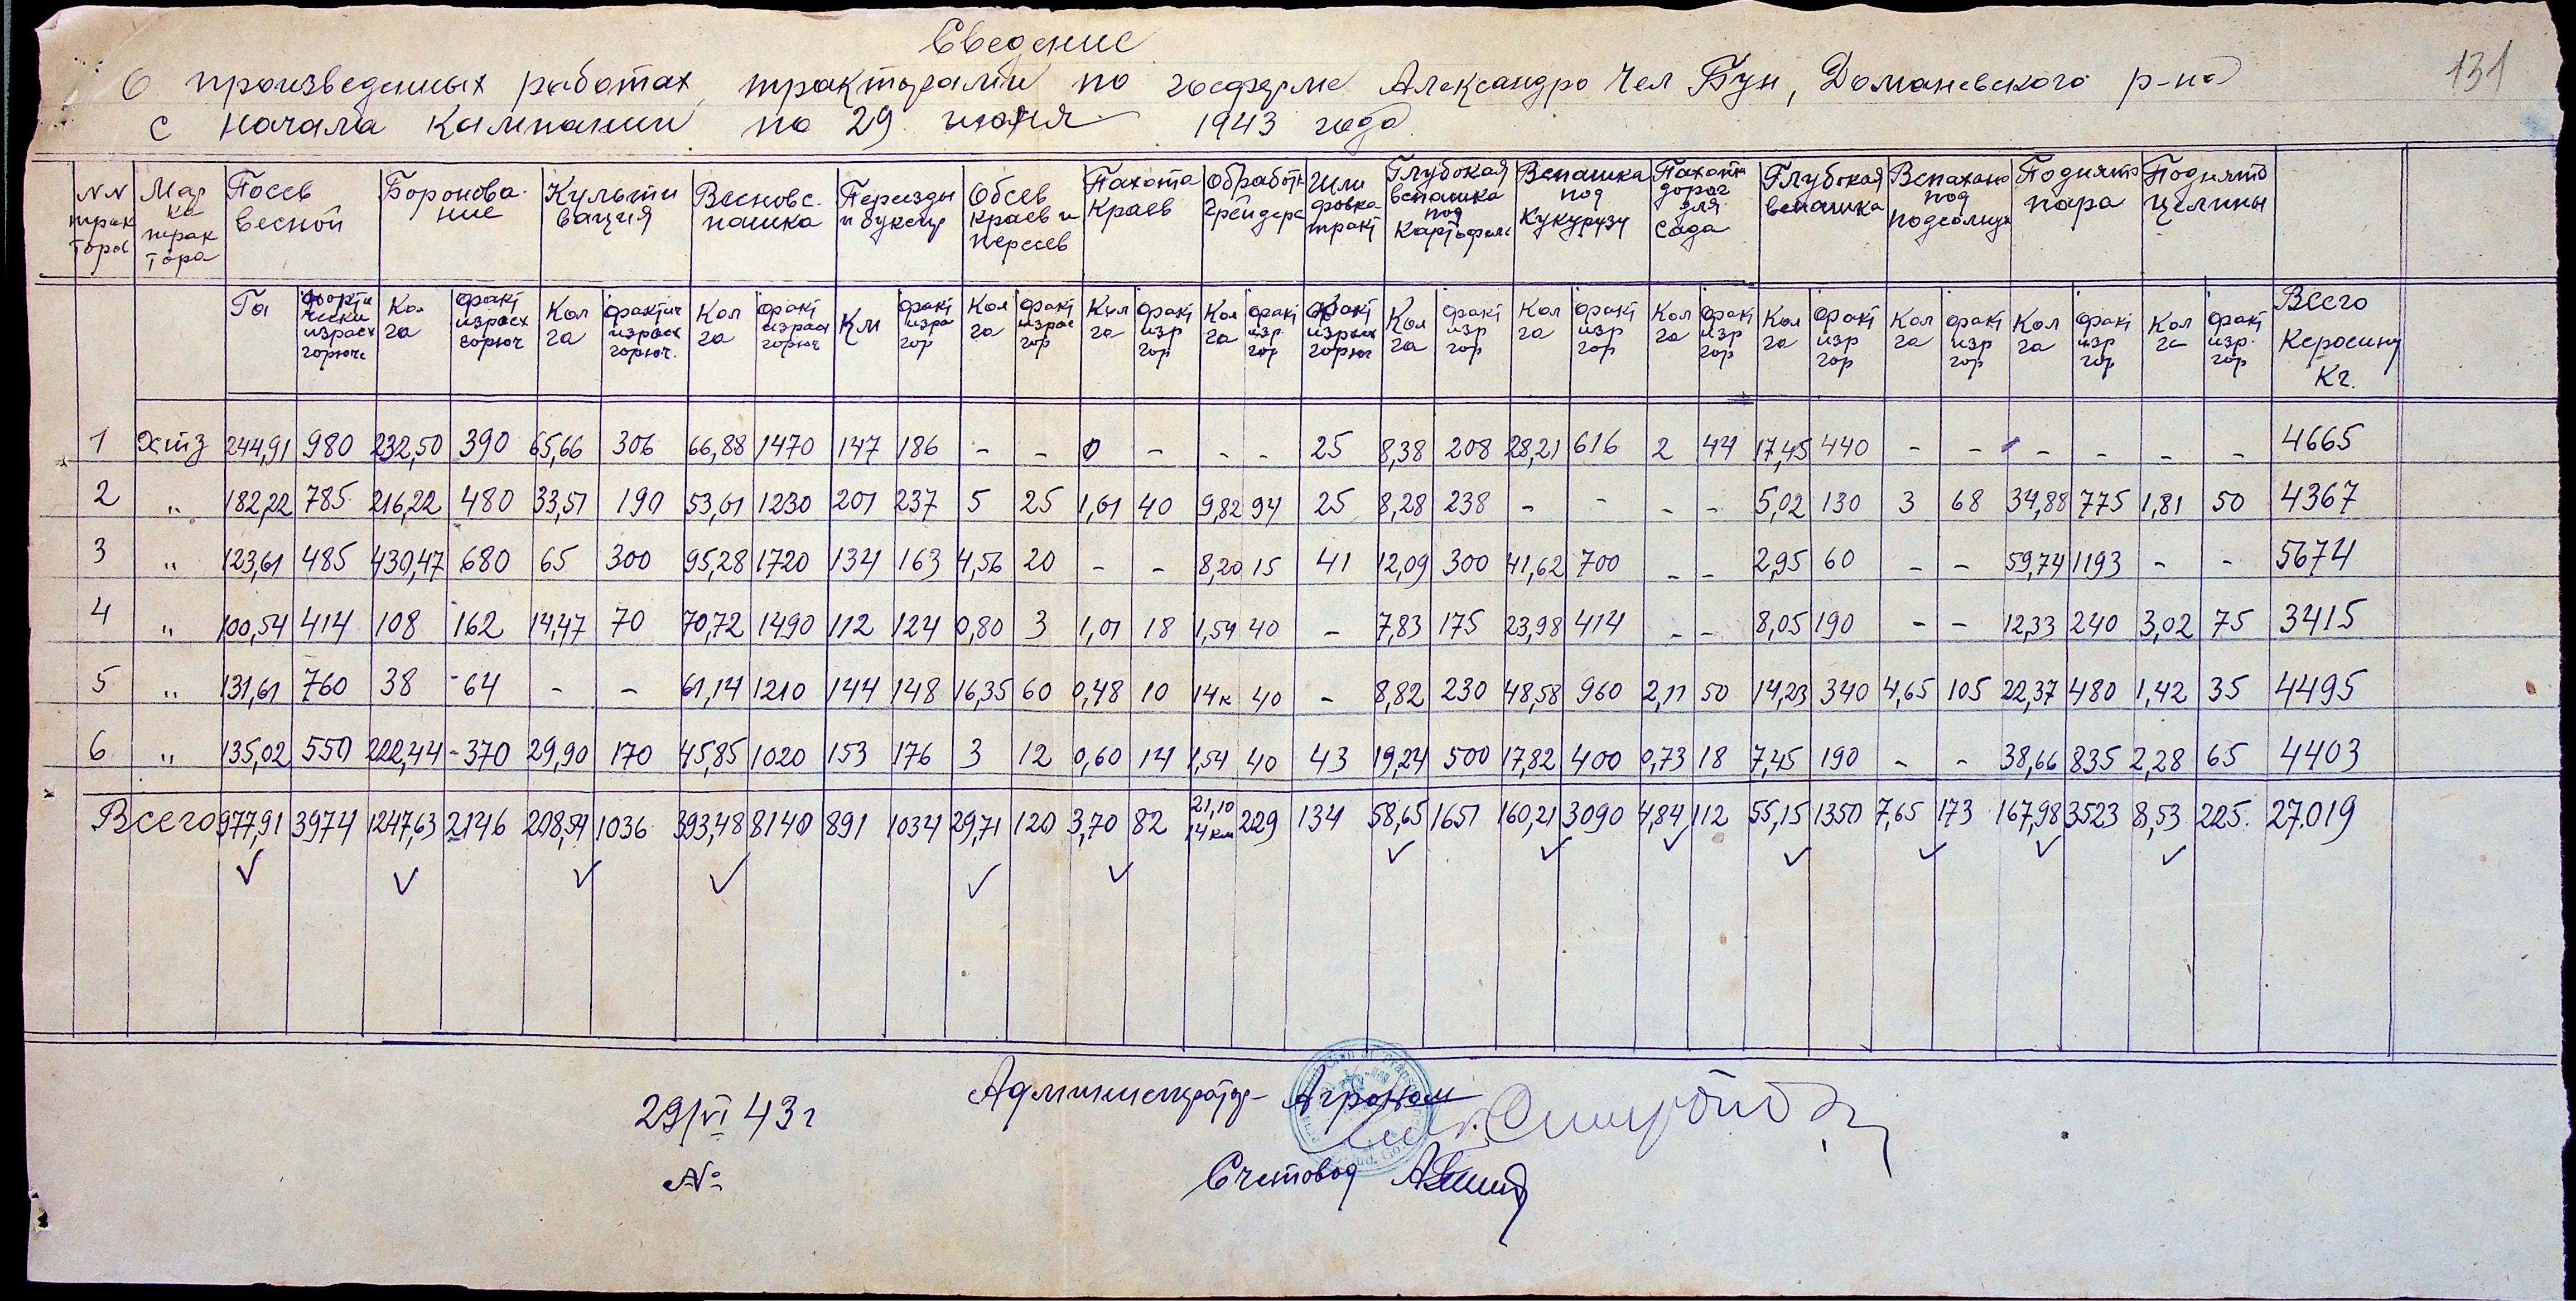 131
Сведение
О произведенных работах тракторами по госферме Александро Чел Бун, Доманевского р-на
с начала кампании по 29 июня 1943 года
NN тракторов | Марка трактора | Посев весной | Боронование | Культивация | Весновспашка | Переезды и буксир | Обсев краев и пересев | Пахота краев | Обработка Грейдера | Шлифовка тракт | Глубокая вспашка под Картофель | Вспашка под Кукурузу | Пахота дорог для Сада | Глубокая вспашка | Вспахано под подсолнух | Поднято пара | Поднято целины
Га | фактически израсх горюче | Кол га | факт израсх горюч | Кол га | фактич израсх горюч. | Кол га | факт израсх горюч | Км | факт изра гор | Кол га | факт израс гор | Кол га | факт изр гор | Кол га | факт изр. гор | факт израсх горюч | Кол га | факт изр гор | Кол га | факт изр гор | Кол га | факт изр гор | Кол га | факт изр гор | Кол га | факт изр гор | Кол га | факт изр гор | Кол га | факт изр. гор | Всего Керосину Кг.
1 | ХТЗ | 244,91 | 980 | 232,50 | 390 | 65,66 | 306 | 66,88 | 1470 | 147 | 186 | - | - | 0 | - | - | - | 25 | 8,38 | 208 | 28,21 | 616 | 2 | 44 | 17,45 | 440 | - | - | - | - | - | - | 4665
2 | " | 182,22 | 785 | 216,22 | 480 | 33,51 | 190 | 53,01 | 1230 | 201 | 237 | 5 | 25 | 1,01 | 40 | 9,82 | 94 | 25 | 8,28 | 238 | - | - | - | - | 5,02 | 130 | 3 | 68 | 34,88 | 775 | 1,81 | 50 | 4367
3 | " | 123,61 | 485 | 430,47 | 680 | 65 | 300 | 95,28 | 1720 | 134 | 163 | 4,56 | 20 | - | - | 8,20 | 15 | 41 | 12,09 | 300 | 41,62 | 700 | - | - | 2,95 | 60 | - | - | 59,74 | 1193 | - | - | 5674
4 | " | 100,54 | 414 | 108 | 162 | 14,47 | 70 | 70,72 | 1490 | 112 | 124 | 0,80 | 3 | 1,01 | 18 | 1,54 | 40 | - | 7,83 | 175 | 23,98 | 414 | - | - | 8,05 | 190 | - | - | 12,33 | 240 | 3,02 | 75 | 3415
5 | " | 131,61 | 760 | 38 | 64 | - | - | 61,14 | 1210 | 144 | 148 | 16,35 | 60 | 0,48 | 10 | 14к | 40 | - | 8,82 | 230 | 48,58 | 960 | 2,11 | 50 | 14,23 | 340 | 4,65 | 105 | 22,37 | 480 | 1,42 | 35 | 4495
6 | " | 135,02 | 550 | 222,44 | 370 | 29,90 | 170 | 45,85 | 1020 | 153 | 176 | 3 | 12 | 0,60 | 14 | 1,54 | 40 | 43 | 19,24 | 500 | 17,82 | 400 | 0,73 | 18 | 7,45 | 190 | - | - | 38,66 | 835 | 2,28 | 65 | 4403
Всего | 977,91 | 3974 | 1247,63 | 2146 | 208,54 | 1036 | 393,48 | 8140 | 891 | 1034 | 29,71 | 120 | 3,70 | 82 | 21,10 14 км | 229 | 134 | 58,65 | 1651 | 160,21 | 3090 | 4,84 | 112 | 55,15 | 1350 | 7,65 | 173 | 167,98 | 3523 | 8,53 | 225. | 27.019
29/VI 43 г
Администратор- Агроном
№
Счетовод